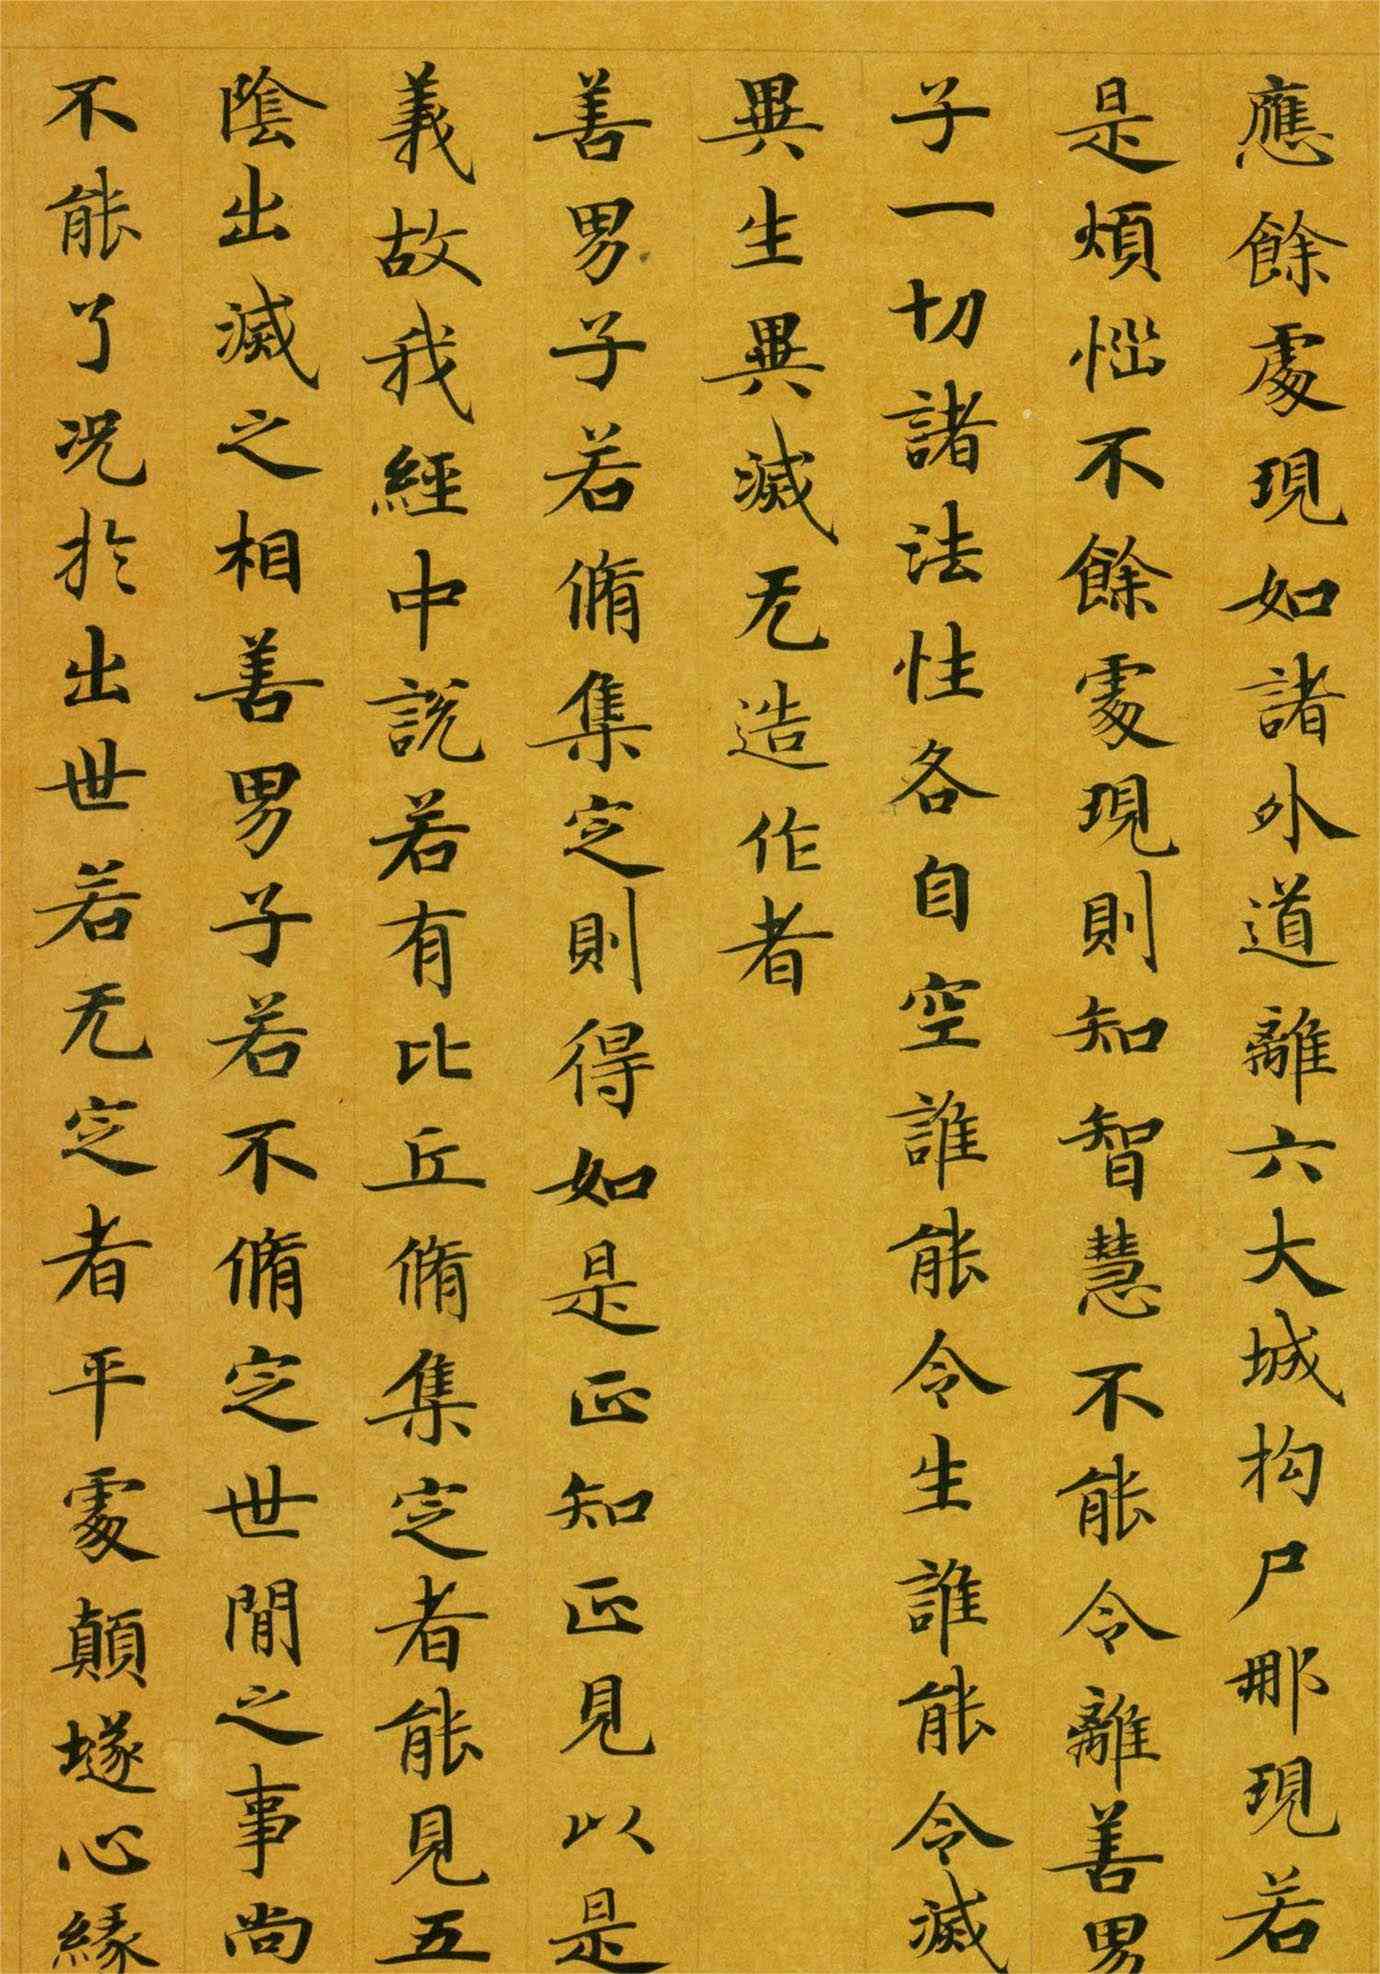 應餘處現如諸外道離六大城构尸那現若
是煩惱不餘處現則知智慧不能令離善男
子一切諸法性各自空誰能令生誰能令滅
異生異滅无造作者
善男子若脩集定則得如是正知正見以是
義故我經中說若有比丘脩集定者能見五
陰出滅之相善男子若不脩定世間之事尚
不能了况於出世若无定者平處顛墜心緣